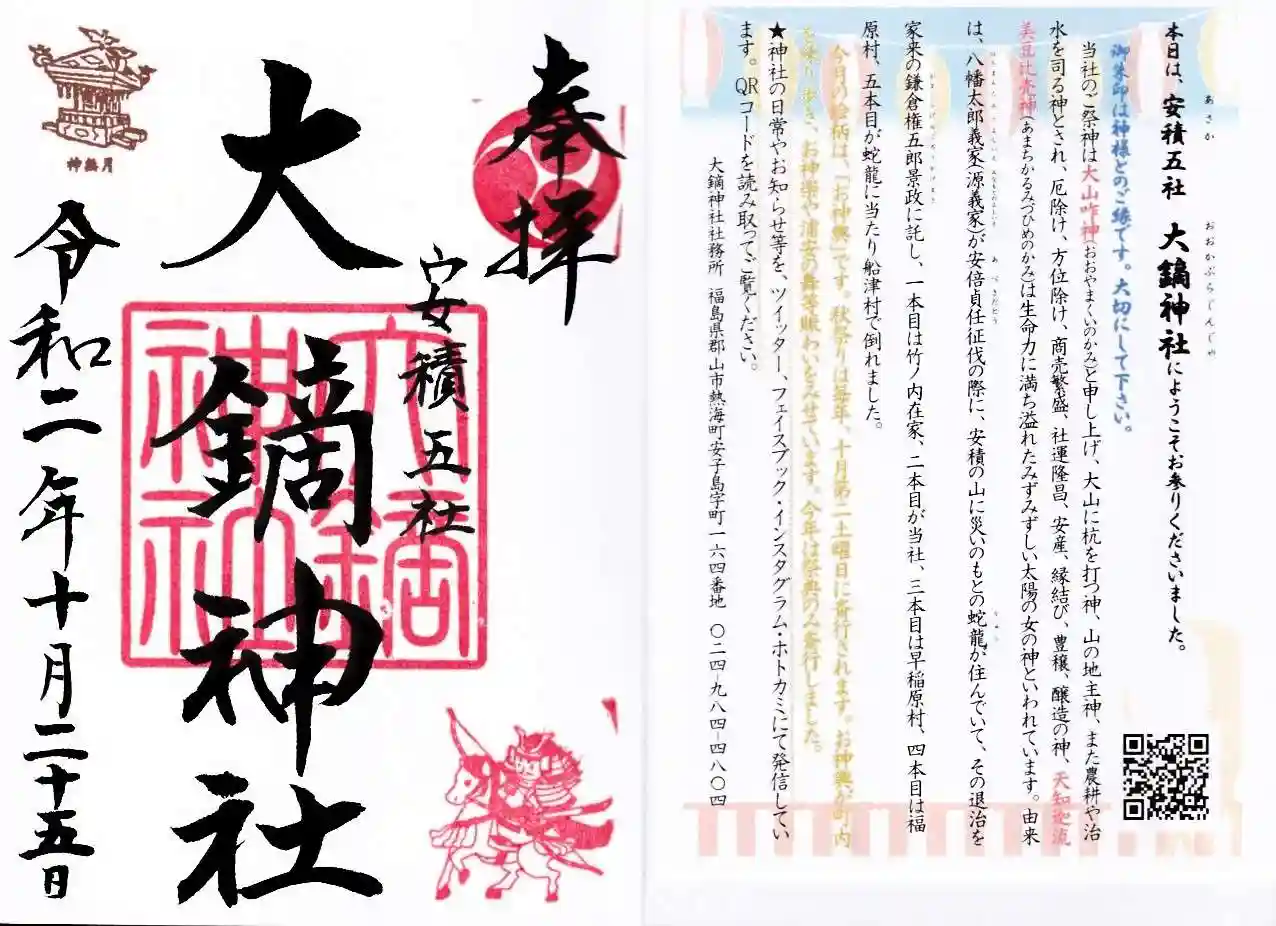 奉拝
安積五社
大鏑神社
令和二年十月二十五日
神無月
大鏑神社
本日は、安積五社 大鏑神社にようこそお参りくださいました。
あさか
おおかぶらじんじゃ
御朱印は神様とのご縁です。大切にして下さい。
当社のご祭神は大山咋神(おおやまくいのかみ)と申し上げ、大山に杭を打つ神、山の地主神、また農耕や治
水を司る神とされ、厄除け、方位除け、商売繁盛、社運隆昌、安産、縁結び、豊穣、醸造の神、天知迦流
美豆比売神(あまちかるみづひめのかみ)は生命力に満ち溢れたみずみずしい太陽の女の神といわれています。由来
は、八幡太郎義家(源義家)が安倍貞任征伐の際に、安積の山に災いのもとの蛇龍が住んでいて、その退治を
家来の鎌倉権五郎景政に託し、一本目は竹ノ内在家、二本目が当社、三本目は早稲原村、四本目は福
原村、五本目が蛇龍に当たり船津村で倒れました。
今月の絵柄は、「お神輿」です。秋祭りは毎年、十月第二土曜日に斎行されます。お神輿が町内
を練り歩き、お神楽や浦安の舞等賑わいをみせています。今年は祭典のみ斎行しました。
★神社の日常やお知らせ等を、ツイッター、フェイスブック・インスタグラム・ホトカミにて発信してい
ます。QRコードを読み取ってご覧ください。
大鏑神社社務所 福島県郡山市熱海町安子島字町一六四番地 〇二四-九八四-四八〇四